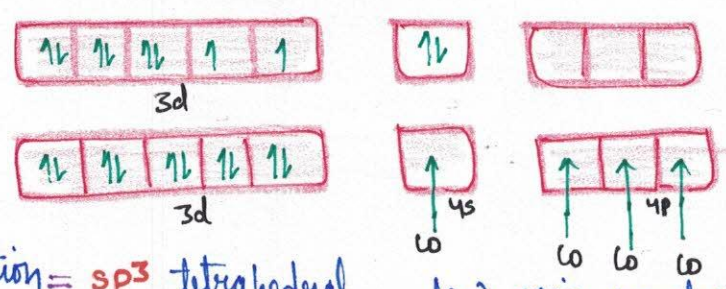 3d
3d 4s 4p
CO CO CO CO
tion = sp3 tetrahedral